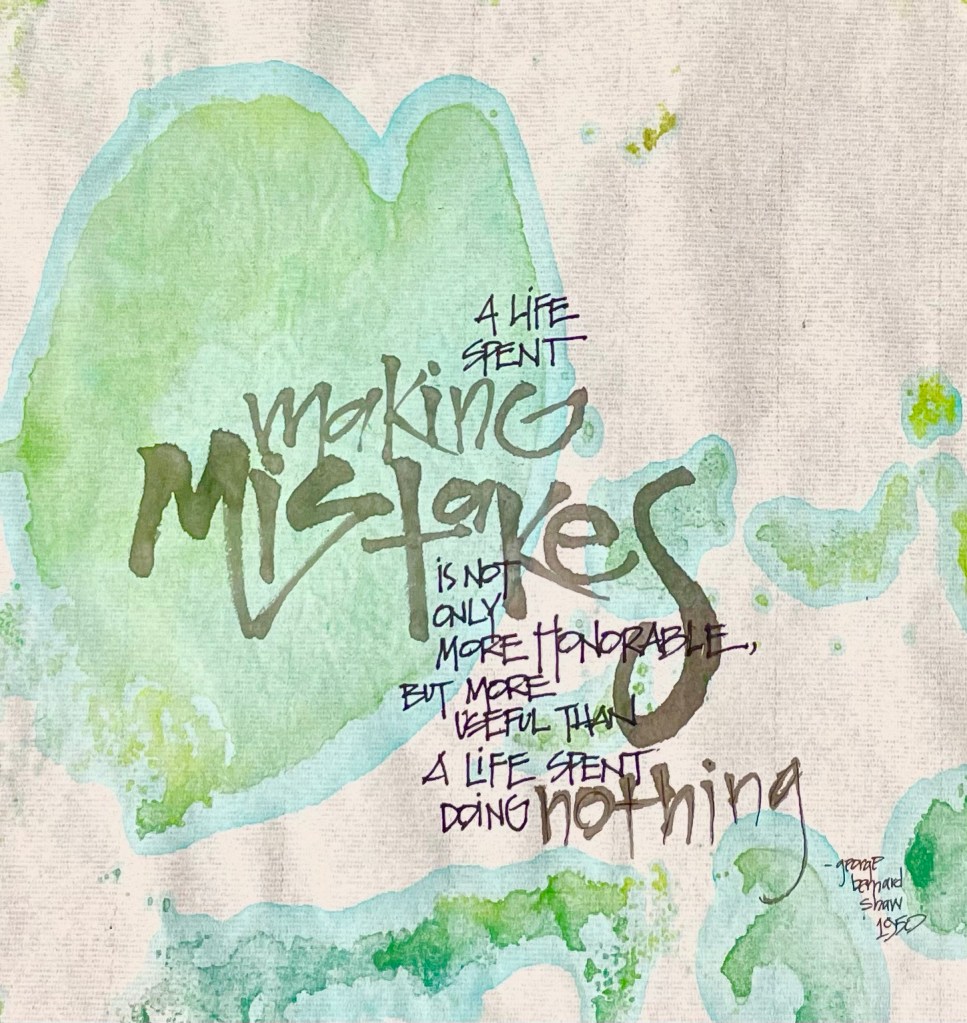 A LiFE
SPENT
making
MisTakes
is NOT
ONLY
MORE HONORABLE,
BUT MORE
USEFUL THAN
A LiFE SPENT
DOiNG nothing
- george
bernard
shaw
1950